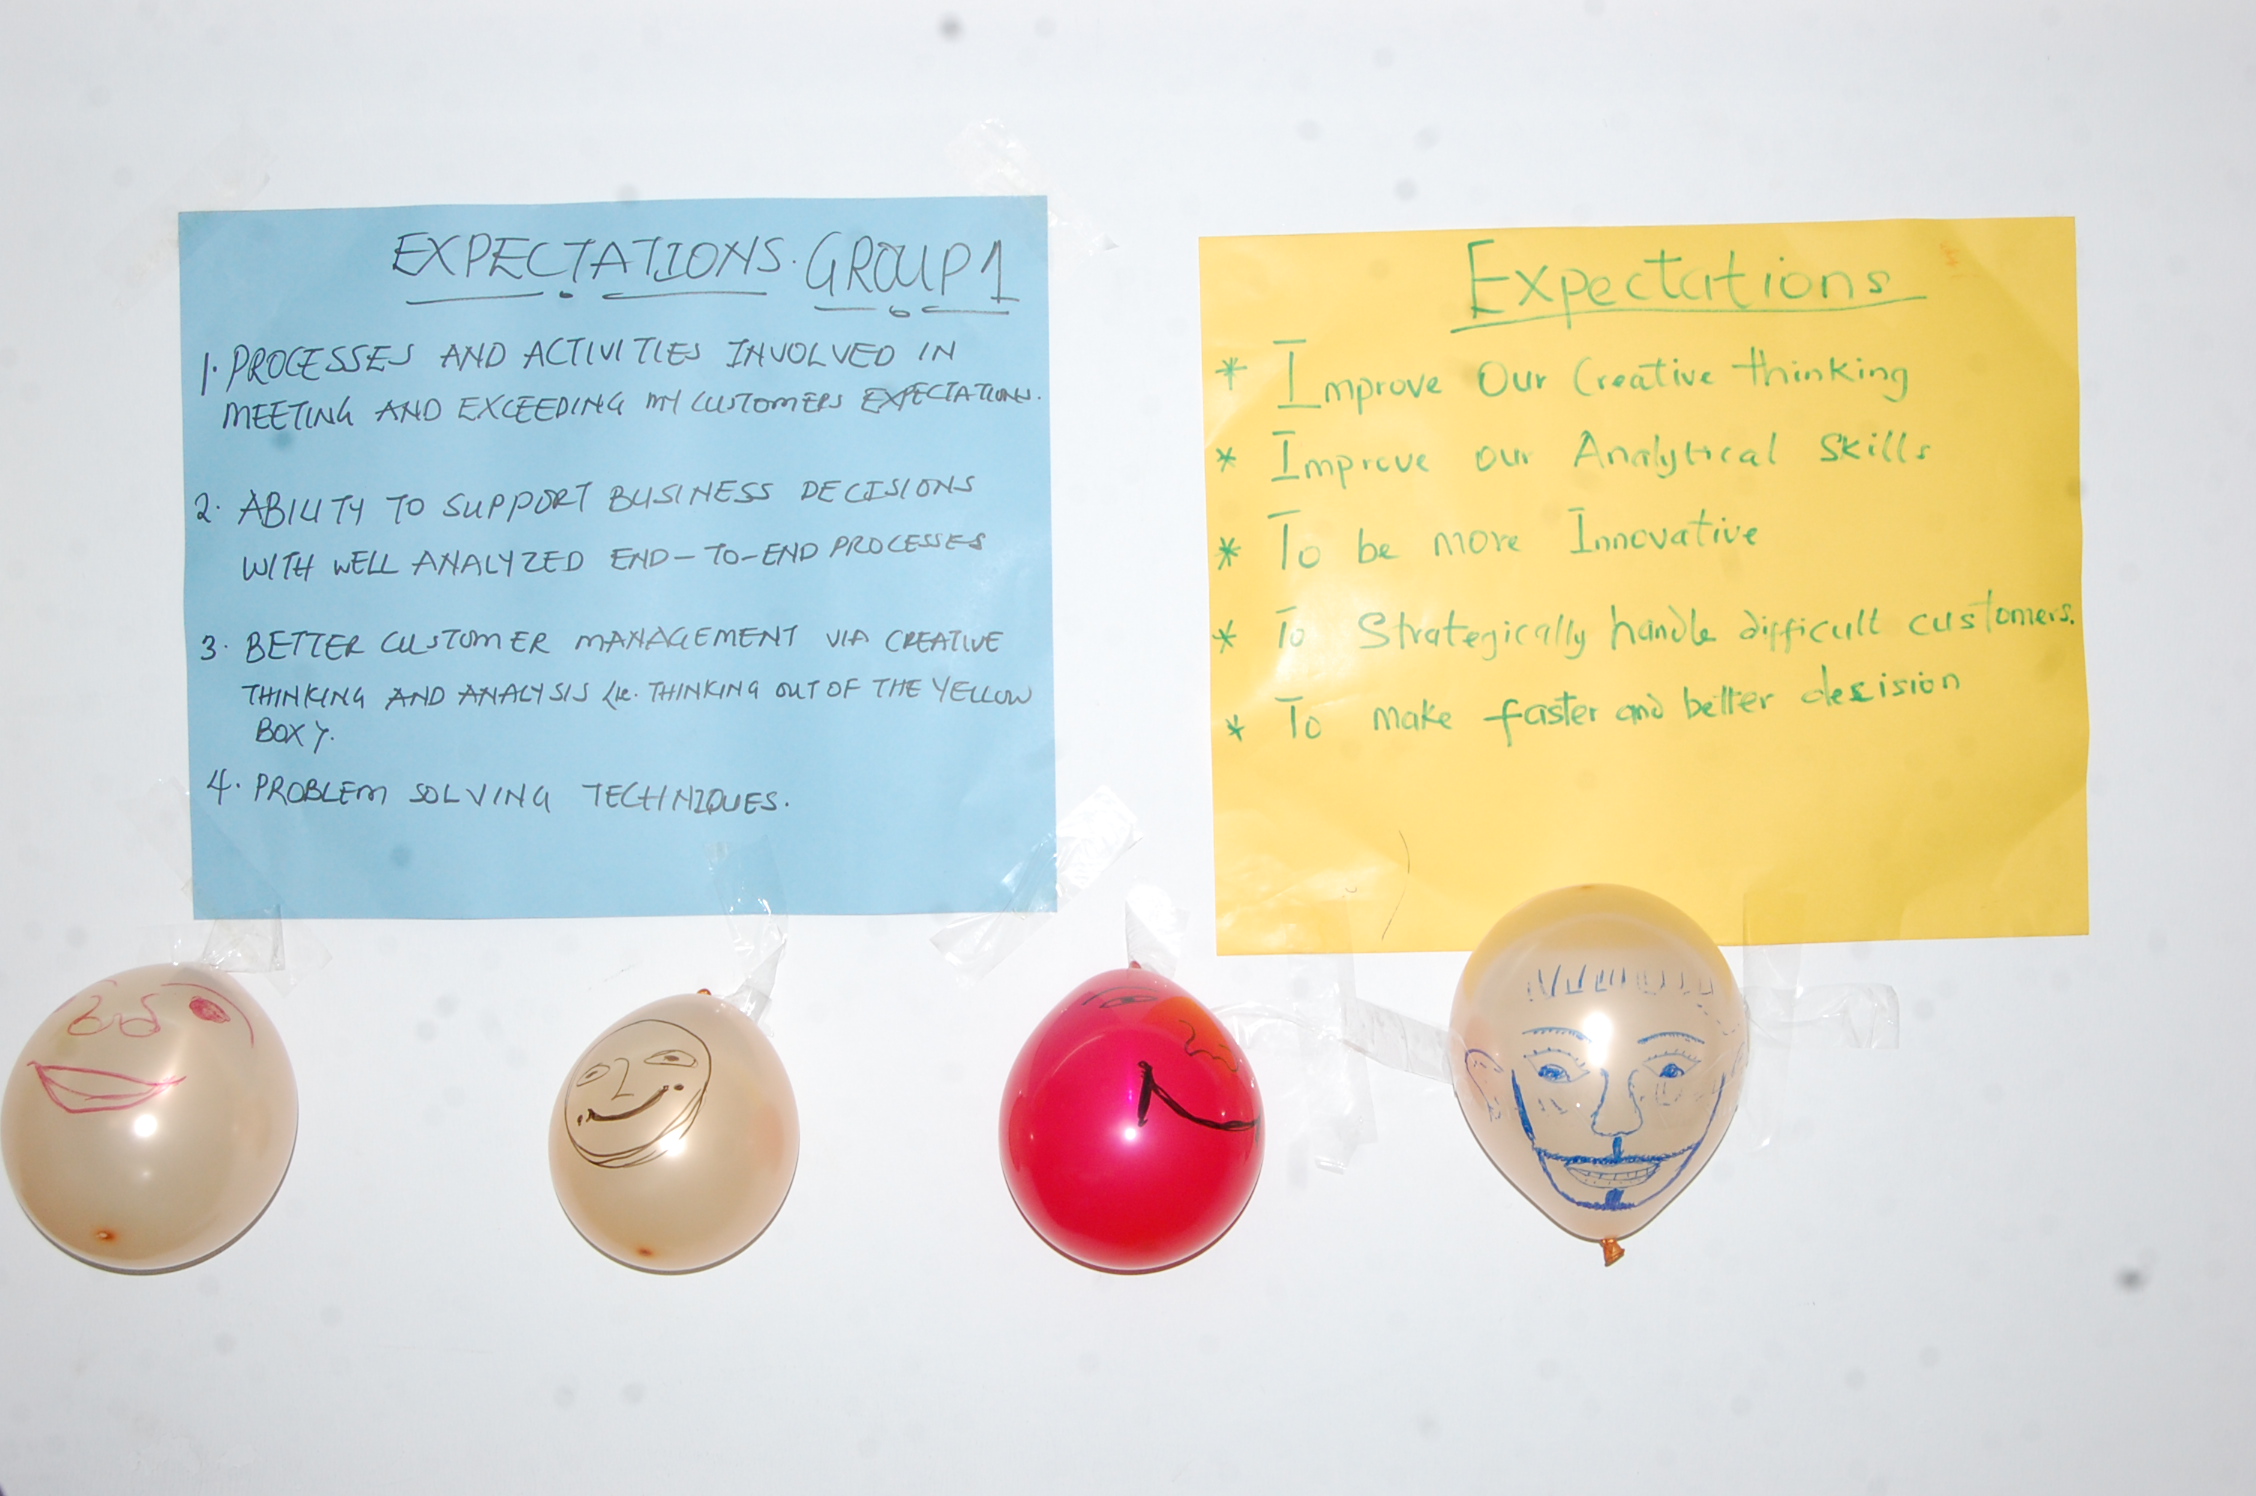 EXPECTATIONS. GROUP 1
1. PROCESSES AND ACTIVITIES INVOLVED IN
MEETING AND EXCEEDING MY CUSTOMERS EXPECTATIONS.
2. ABILITY TO SUPPORT BUSINESS DECISIONS
WITH WELL ANALYZED END-TO-END PROCESSES
3. BETTER CUSTOMER MANAGEMENT VIA CREATIVE
THINKING AND ANALYSIS (ie. THINKING OUT OF THE YELLOW
BOX).
4. PROBLEM SOLVING TECHNIQUES.
Expectations
* Improve Our Creative thinking
* Improve our Analytical Skills
* To be more Innovative
* To Strategically handle difficult customers.
* To make faster and better decision